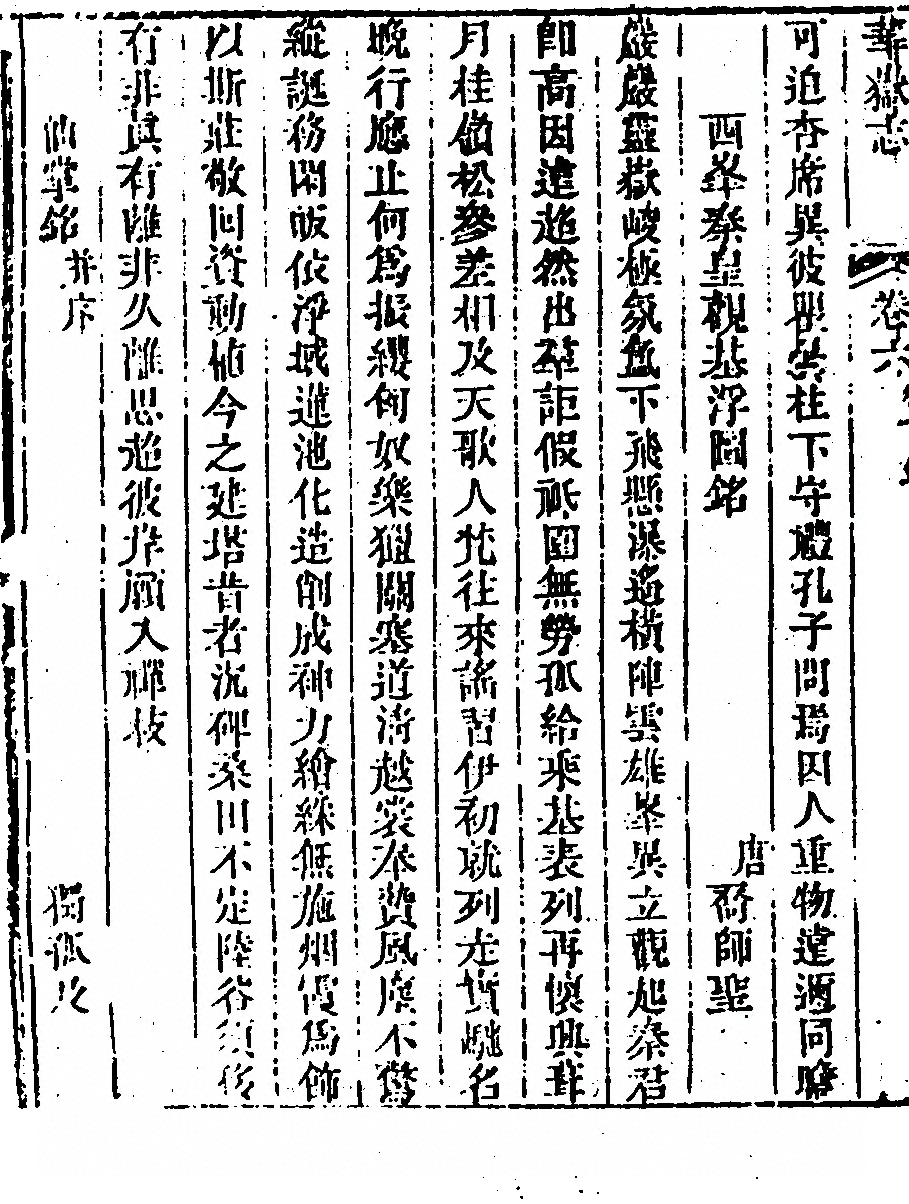 華嶽志 卷六
可迫杏席異彼壆黌柱下守禮孔子問焉因人重物遠邇同瞻
西峯秦皇觀基浮圖銘
唐 喬師聖
巖巖靈嶽峻極氛氳下飛懸瀑遙橫陣雲雄峯異立觀起秦君
卽高因遠逈然出羣詎假祇園無勞孤給乘基表列再懷興葺
月桂嶺松參差相及天歌人梵往來謠習伊初就列左實馳名
晚行應止何爲振纓匈奴樂獵關塞道淸越裳奉贄風塵不驚
縱誕務閑皈依淨域蓮池化造削成神力繪綵無施烟霞爲飾
以斯莊敬回資動植今之建塔昔者沉碑桑田不定陸谷須移
有非眞有離非久離思超彼岸願入禪枝
仙掌銘 并序
獨孤及